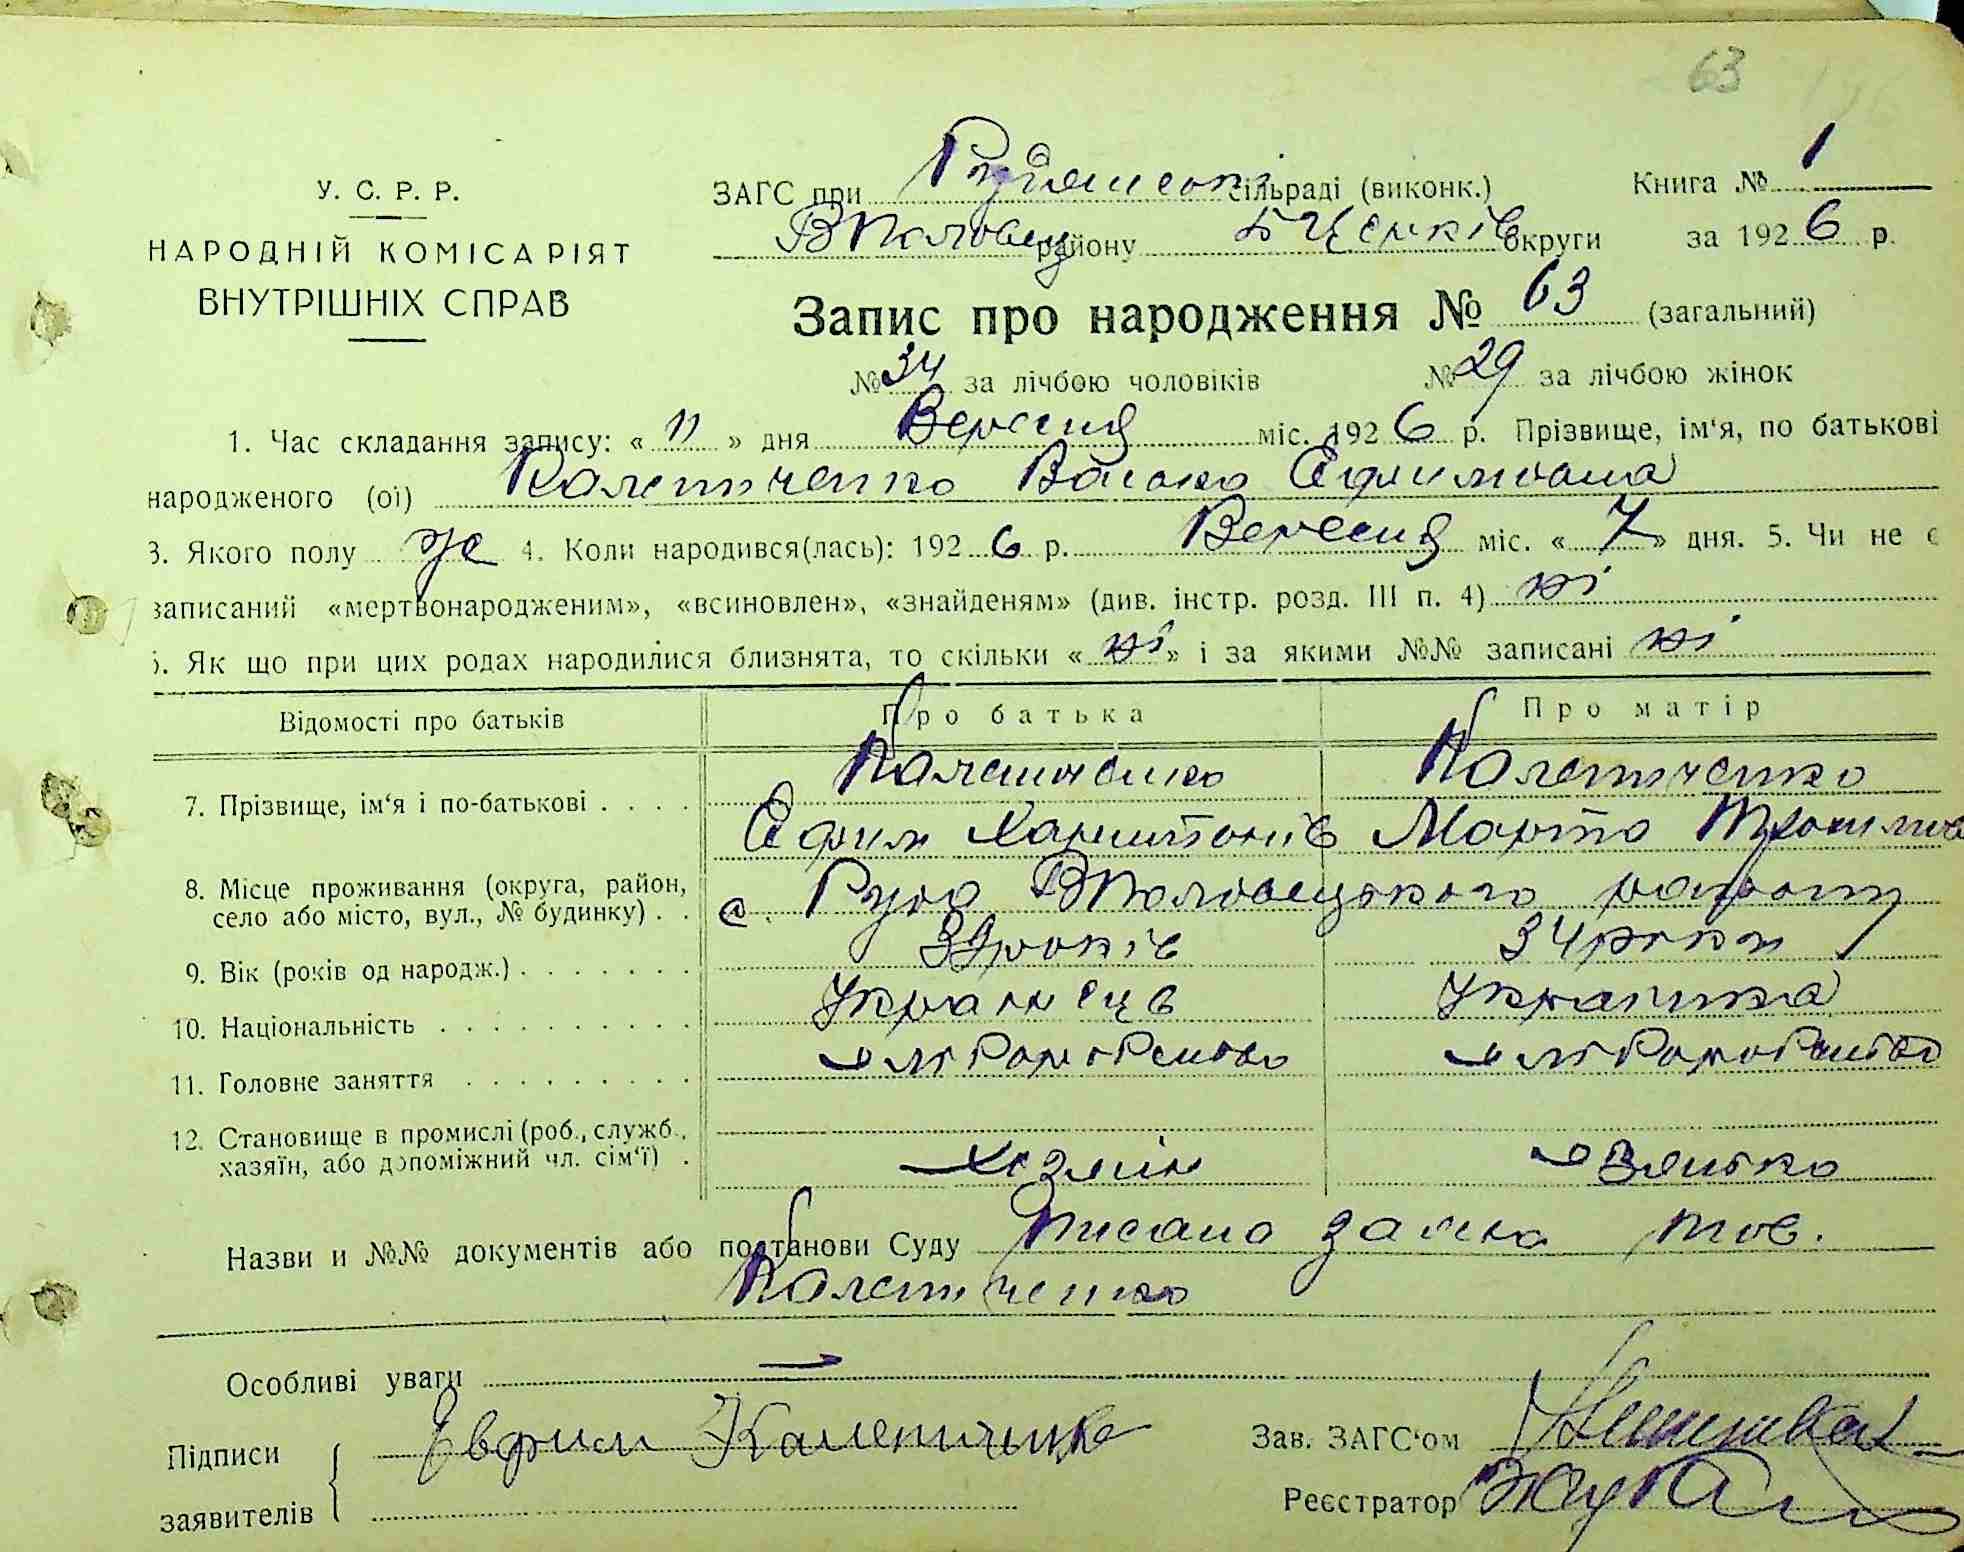 63
У. С. Р. Р.
НАРОДНІЙ КОМІСАРІЯТ
ВНУТРІШНІХ СПРАВ
ЗАГС при сільраді (виконк.) Книга № 1
району округи за 1926 р.
Запис про народження № 63 (загальний)
№ 34 за лічбою чоловіків № 29 за лічбою жінок
1. Час складання запису: « 11 » дня Вересня міс. 1926 р. Прізвище, ім'я, по батькові
народженого (ої) Калениченко
3. Якого полу жс 4. Коли народився(лась): 1926 р. Вересня міс. « 7 » дня. 5. Чи не є
записаний «мертвонародженим», «всиновлен», «знайденям» (див. інстр. розд. III п. 4) ні
Як що при цих родах народилися близнята, то скільки « ні » і за якими №№ записані ні
Відомості про батьків Про батька Про матір
7. Прізвище, ім'я і по-батькові Калениченко Калениченко
Ефим Харитонів Марта Трохимова
8. Місце проживання (округа, район,
село або місто, вул., № будинку) с. Руда ВПоловецького району
9. Вік (років од народж.) років 34 роки
10. Національність Українець Українка
11. Головне заняття хліборобство хліборобство
12. Становище в промислі (роб., служб.,
хазяїн, або допоміжний чл. сім'ї) хозяїн хозяйка
Назви и №№ документів або постанови Суду тов.
Калениченко
Особливі уваги —
Підписи Ефрим Калениченко Зав. ЗАГС'ом
заявителів Реєстратор